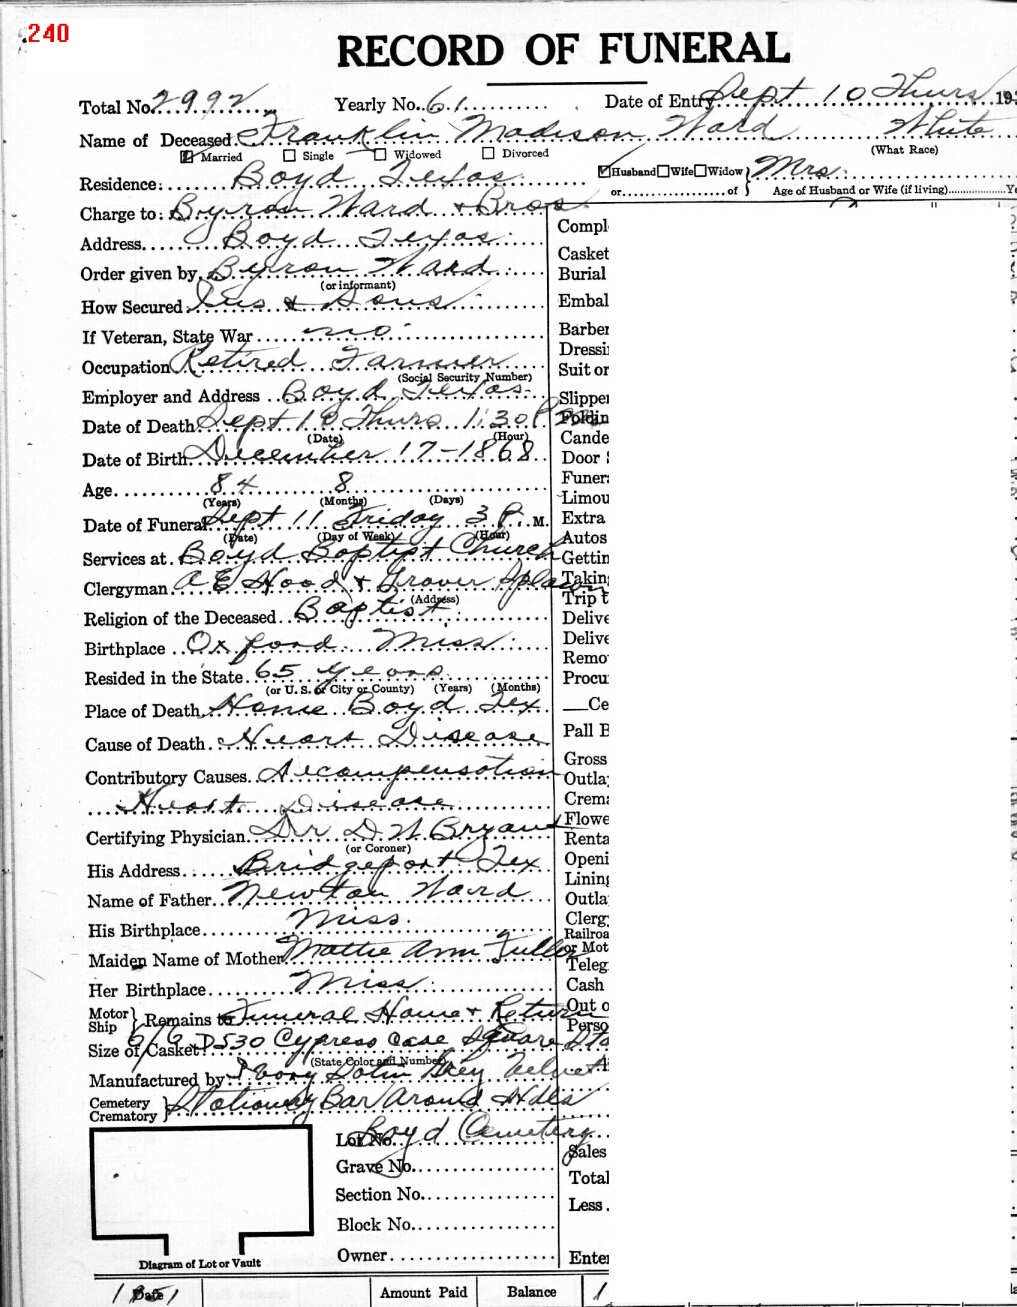 240
RECORD OF FUNERAL
Total No. 2992 Yearly No. 61 Date of Entry Sept 10 Thurs 193
Name of Deceased Franklin Madison Ward White
Married Single Widowed Divorced (What Race)
Residence: Boyd Texas Husband Wife Widow } Mrs.
or of Age of Husband or Wife (if living)
Charge to: Byron Ward & Bros
Address Boyd Texas
Order given by Byron Ward
(or informant)
How Secured & Sons
If Veteran, State War no
Occupation Retired Farmer
(Social Security Number)
Employer and Address Boyd Texas
Date of Death Sept 10 Thurs 1:30 P
(Date) (Hour)
Date of Birth December 17-1868
Age 84 8
(Years) (Months) (Days)
Date of Funeral Sept 11 Friday 3 P. M.
(Date) (Day of Week) (Hour)
Services at Boyd Baptist Church
Clergyman A E Hood & Grover
(Address)
Religion of the Deceased Baptist
Birthplace Oxford Miss
Resided in the State 65 years
(or U. S. or City or County) (Years) (Months)
Place of Death Home Boyd Tex
Cause of Death Heart Disease
Contributory Causes Decompensation
Heart Disease
Certifying Physician Dr D W Bryant
(or Coroner)
His Address Bridgeport Tex
Name of Father Newton Ward
His Birthplace Miss.
Maiden Name of Mother Mattie Ann Fuller
Her Birthplace Miss
Motor Ship } Remains to Funeral Home & Return
Size of Casket 6/6 D530 Cypress Case Square
(State Color and Number)
Manufactured by Ivory Satin Grey Velvet
Cemetery Crematory } Stationary Bar Around Hdls
Lot No. Boyd Cemetery
Grave No.
Section No.
Block No.
Owner
Diagram of Lot or Vault
Date Amount Paid Balance
Compl
Casket
Burial
Embal
Barber
Dressi
Suit or
Slipper
Foldin
Cande
Door
Funer
Limou
Extra
Autos
Gettin
Taking
Trip t
Delive
Delive
Remo
Procu
Ce
Pall B
Gross
Outla
Crema
Flowe
Renta
Openi
Lining
Outla
Clergy
Railroa
or Mot
Teleg
Cash
Out o
Perso
Sales
Total
Less
Enter